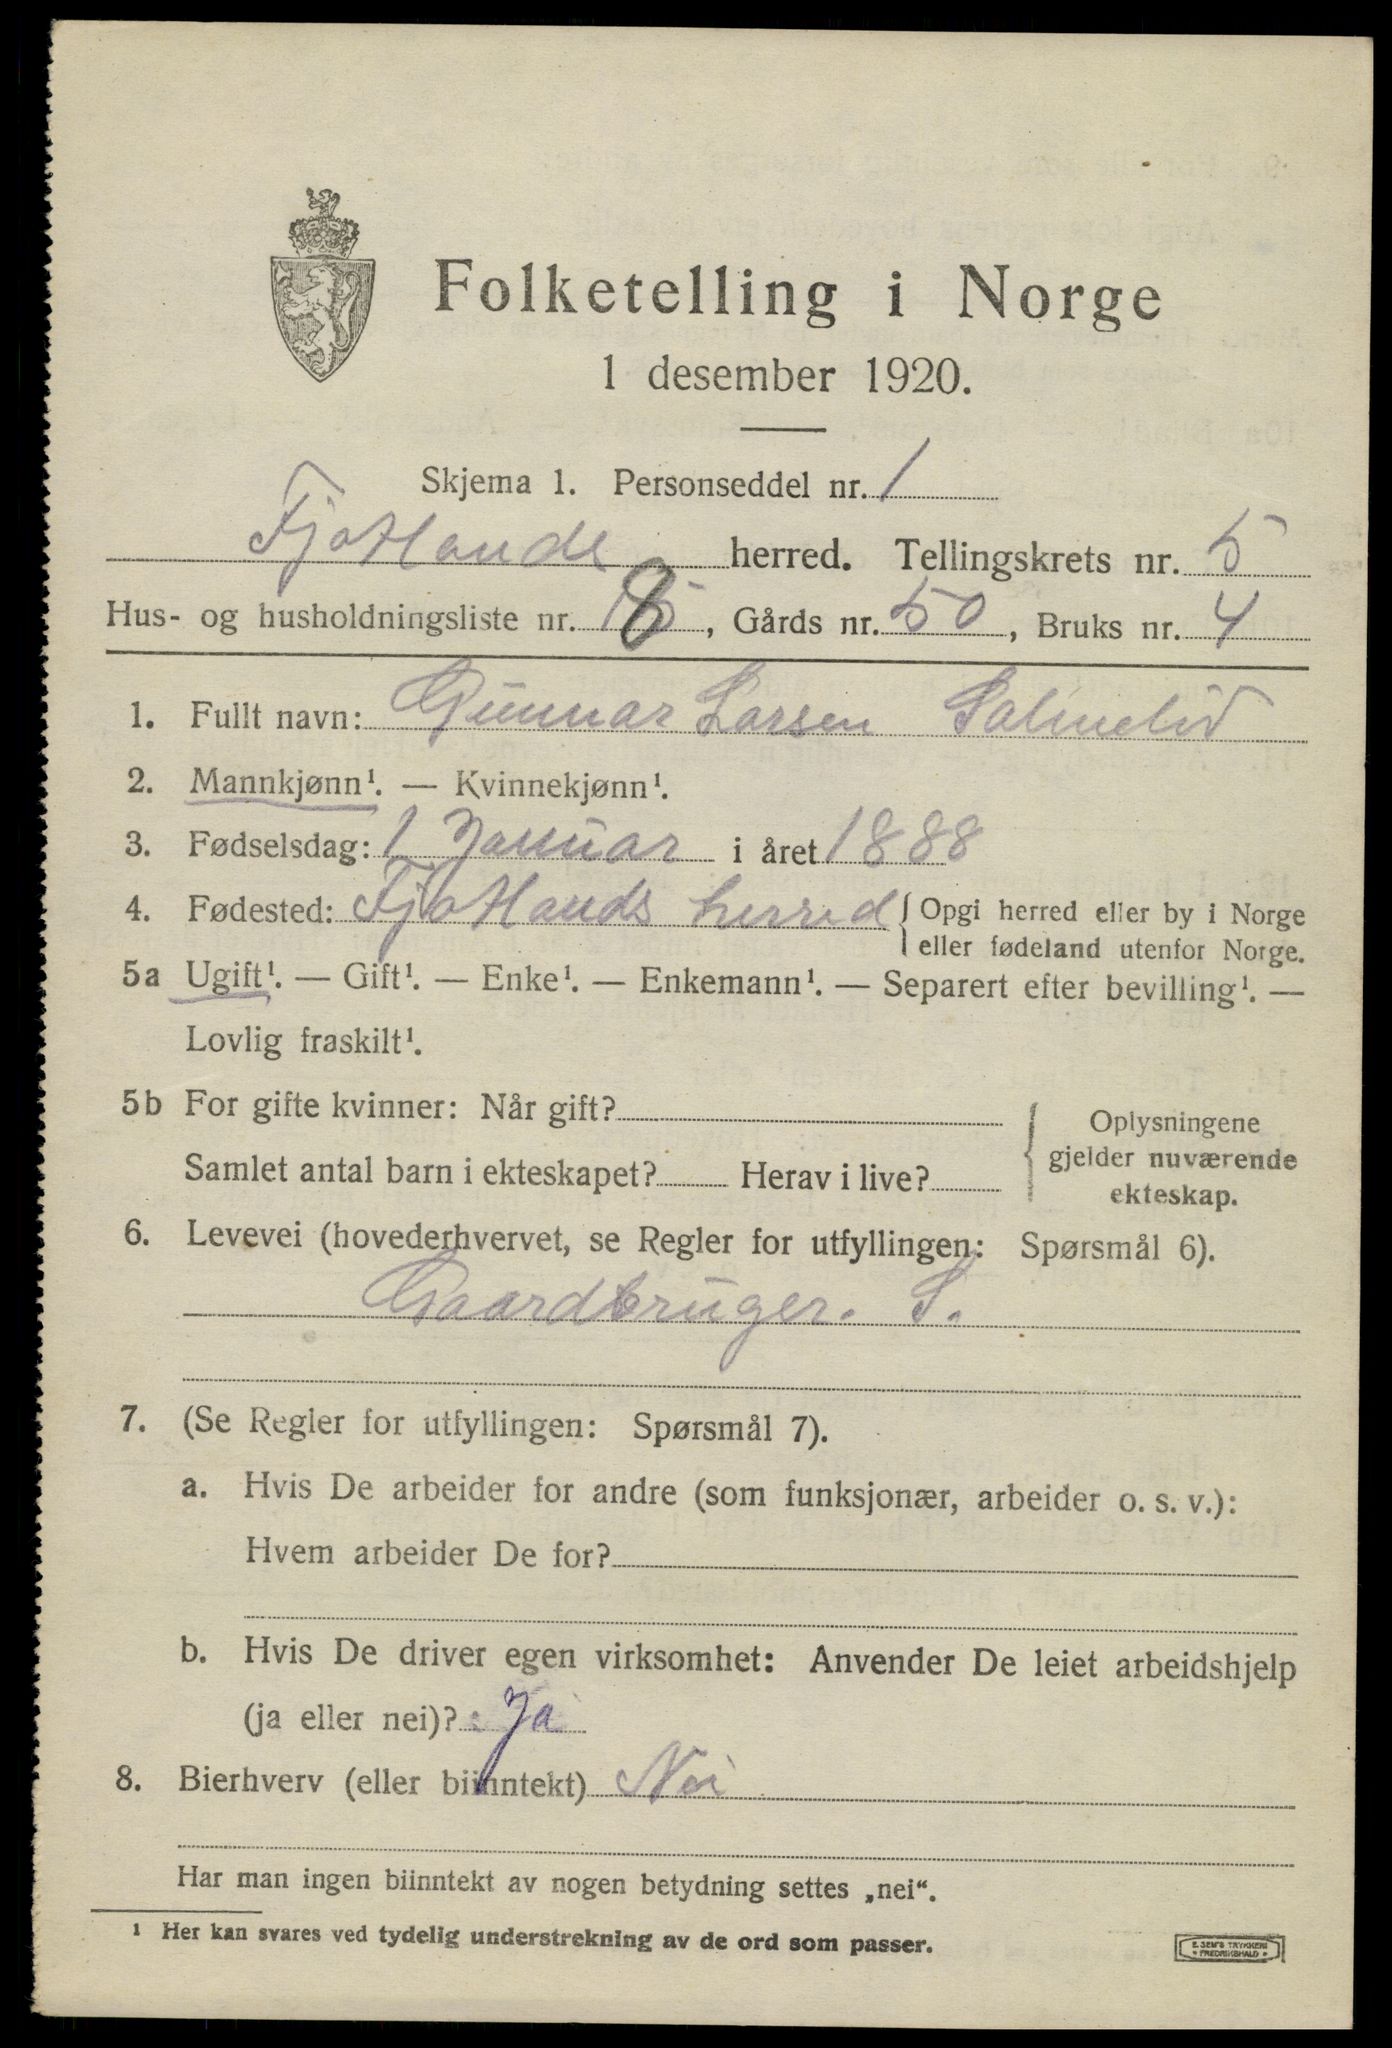 Folketelling i Norge
1 desember 1920.
Skjema 1. Personseddel nr. 1
Fjotlands herred. Tellingskrets nr. 5
Hus- og husholdningsliste nr. 8, Gårds nr. 50, Bruks nr. 4
1. Fullt navn: Gunnar Larsen Salmelid
2. Mannkjønn¹. — Kvinnekjønn¹.
3. Fødselsdag: 1 Januar i året 1888
4. Fødested: Fjotlands herred { Opgi herred eller by i Norge
eller fødeland utenfor Norge.
5a Ugift¹. — Gift¹. — Enke¹. — Enkemann¹. — Separert efter bevilling¹. —
Lovlig fraskilt¹.
5b For gifte kvinner: Når gift?
Samlet antal barn i ekteskapet? Herav i live?
{ Oplysningene
gjelder nuværende
ekteskap.
6. Levevei (hovederhvervet, se Regler for utfyllingen: Spørsmål 6).
Gaardbruger. S.
7. (Se Regler for utfyllingen: Spørsmål 7).
a. Hvis De arbeider for andre (som funksjonær, arbeider o. s. v.):
Hvem arbeider De for?
b. Hvis De driver egen virksomhet: Anvender De leiet arbeidshjelp
(ja eller nei)? Ja
8. Bierhverv (eller biinntekt) Nei
Har man ingen biinntekt av nogen betydning settes „nei“.
¹ Her kan svares ved tydelig understrekning av de ord som passer.
E. SEM'S TRYKKERI
• FREDRIKSHALD •